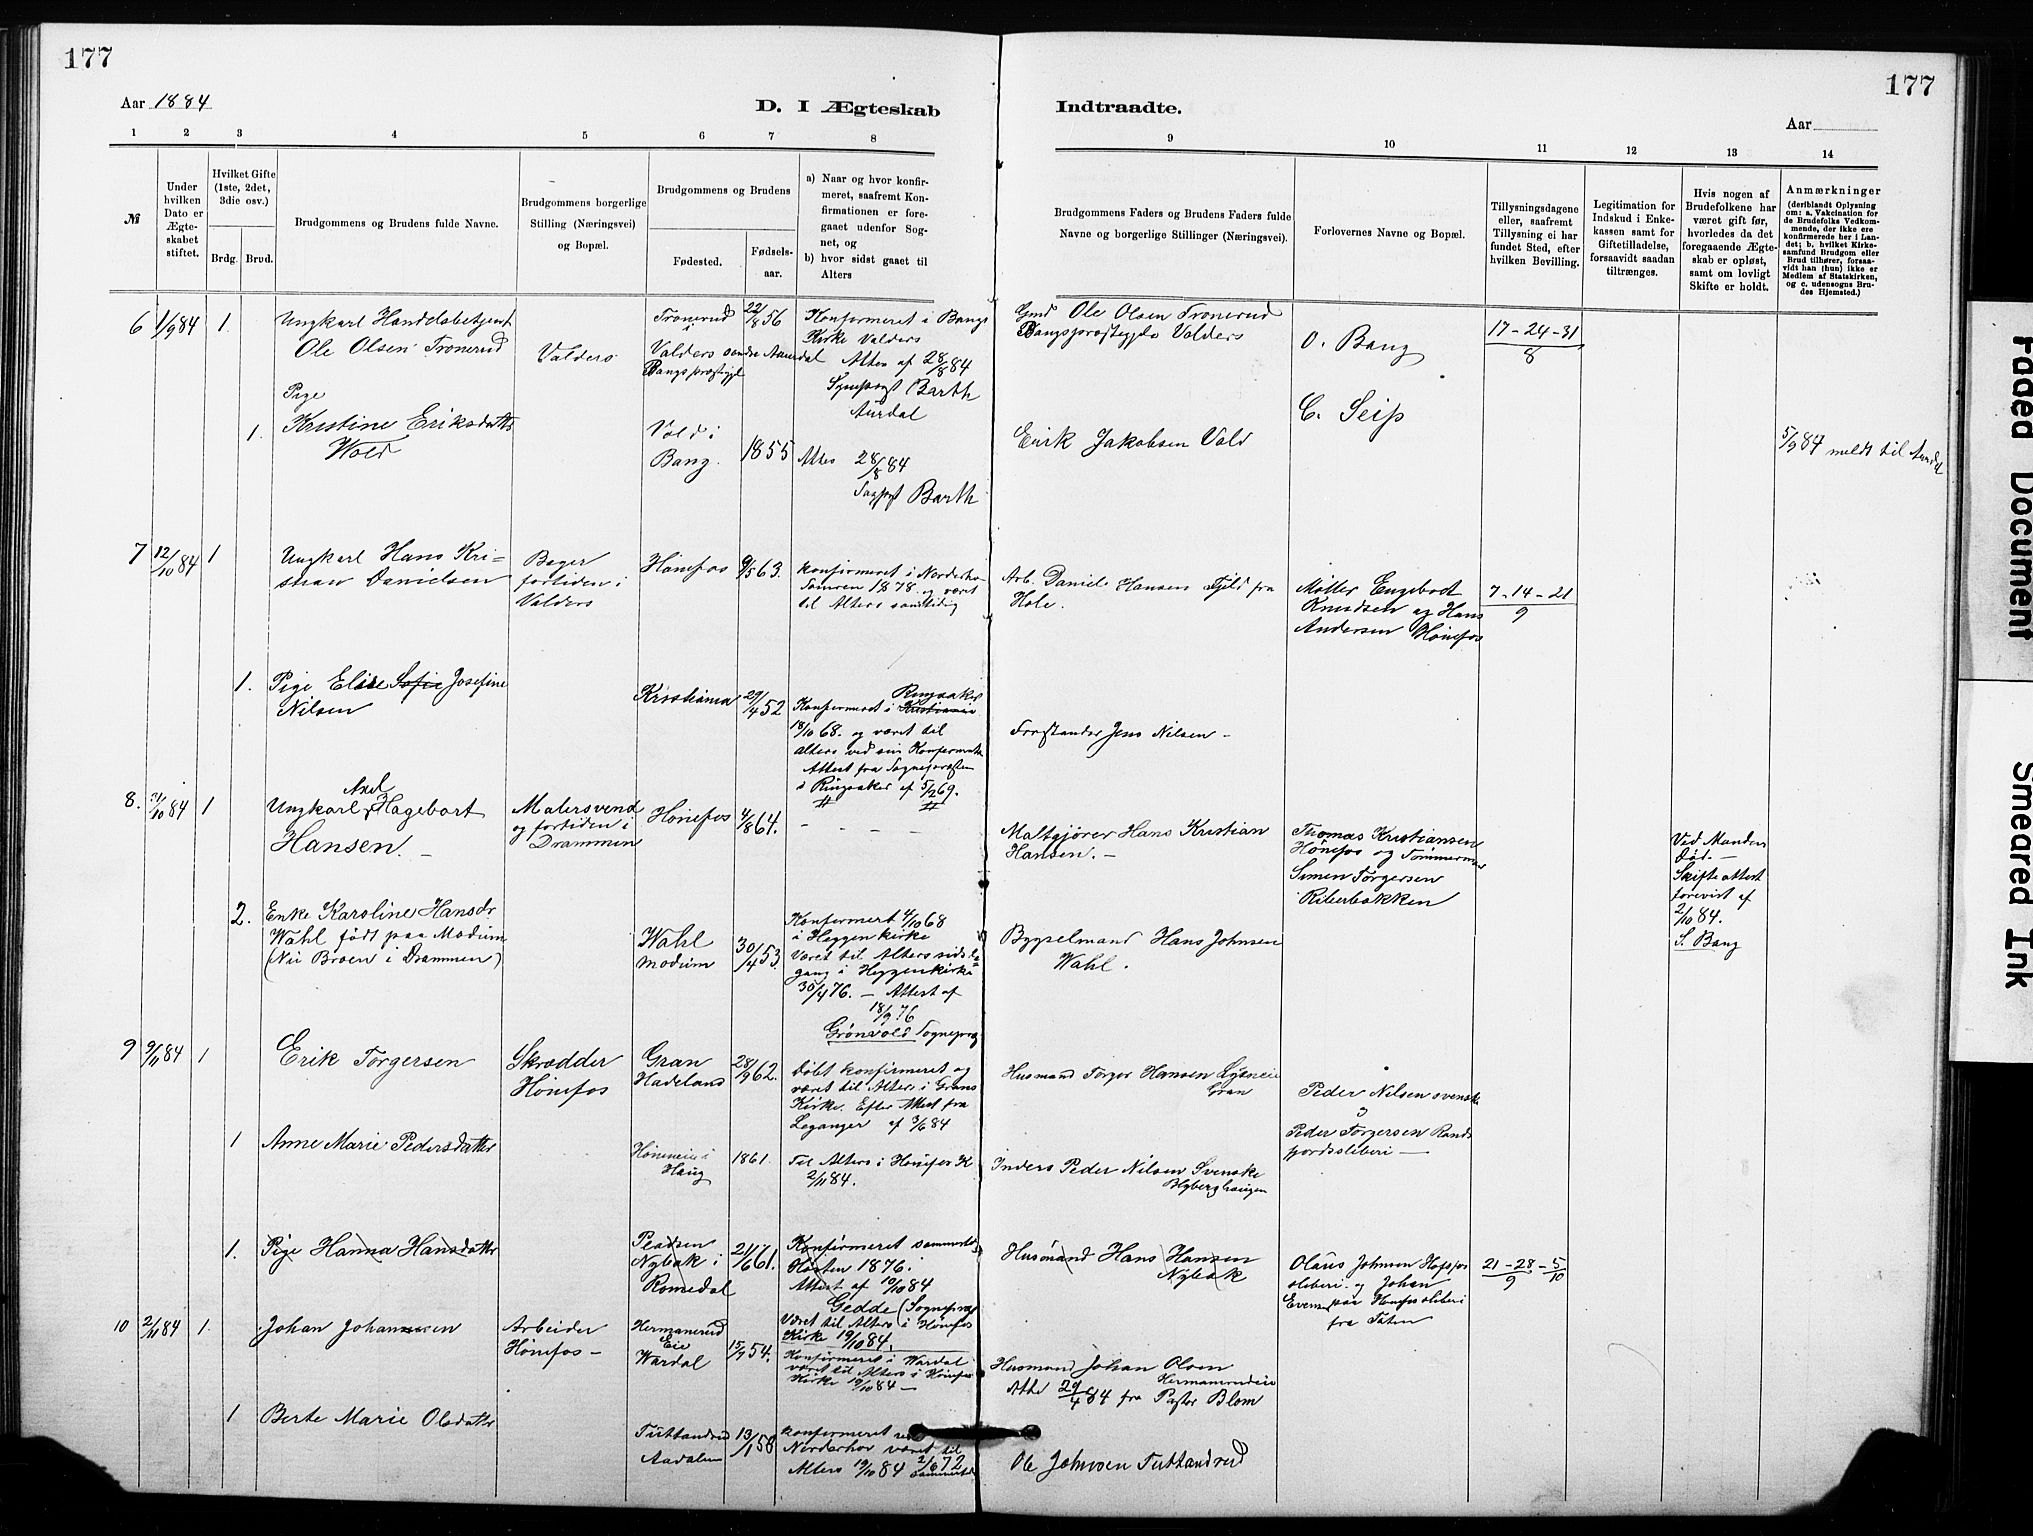 177
177
Aar 1884
D. I Ægteskab
Indtraadte.
Aar
1 2 3 4 5 6 7 8
9 10 11 12 13 14
№
Under hvilken Dato er Ægteskabet stiftet.
Hvilket Gifte (1ste, 2det, 3die osv.)
Brdg. Brud.
Brudgommens og Brudens fulde Navne.
Brudgommens borgerlige Stilling (Næringsvei) og Bopæl.
Brudgommens og Brudens
Fødested.
Fødsels-aar.
a) Naar og hvor konfirmeret, saafremt Konfirmationen er foregaaet udenfor Sognet, og
b) hvor sidst gaaet til Alters
Brudgommens Faders og Brudens Faders fulde Navne og borgerlige Stillinger (Næringsvei).
Forlovernes Navne og Bopæl.
Tillysningsdagene eller, saafremt Tillysning ei har fundet Sted, efter hvilken Bevilling.
Legitimation for Indskud i Enkekassen samt for Giftetilladelse, forsaavidt saadan tiltrænges.
Hvis nogen af Brudefolkene har været gift før, hvorledes da det foregaaende Ægteskab er opløst, samt om lovligt Skifte er holdt.
Anmærkninger
(deriblandt Oplysning om: a. Vakcination for de Brudefolks Vedkommende, der ikke ere konfirmerede her i Landet; b. hvilket Kirkesamfund Brudgom eller Brud tilhører, forsaavidt han (hun) ikke er Medlem af Statskirken, og c. udensogns Brudes Hjemsted.)
6 1/9 84 1.
Ungkarl Handelsbetjent
Ole Olsen Tronerud
Valders
Tronerud
i
Valders søndre Aurdal
Bangs præstegjl
22/8 56
Konfirmeret i Bangs
Kirke Valders
Attes af 28/8 84
Sognepægt Barth
Aurdal
Gmd Ole Olsen Tronerud
Bangs præstegjld Valders
O. Bang
17 - 24 - 31
8
1.
Pige
Kristine Eriksdatter
Wold
Vold i
Bang.
1855
Attes 28/8 84
Barth
Erik Jakobsen Vold
C. Seip
5/9 84 meldt til Aurdal
7 12/10 84 1
Ungkarl Hans Kri-
stian Danielsen
Bager
fortiden i
Valders
Hønefos
9/5 63.
Konfirmeret i Norderho
Sommren 1878. og været
til Alters samtidig
Arb. Daniel Hansen Fjeld fra
Hole.
Møller Engebret
Knudsen og Hans
Andersen Hønefos
7 - 14 - 21
9
1. Pige Elise Sofie Josefine
Nilsen
Kristiania
29/4 52
Ringsaker
Konfirmeret i Kristiania
18/10 68. og været til
alters ved sin Konfirmatio
Attest fra Sognepræsten
i Ringsaker af 5/2 69.
Forstander Jens Nilsen -
8. 31/10 84 1
Axel
Ungkarl Hagebart
Hansen. -
Malersvend
og fortiden i
Drammen
Hønefos
4/8 64.
- - - -
Maltgjører Hans Kristian
Hansen. -
Thomas Kristiansen
Hønefos og Tømmerm
Simen Torgersen
Riberbakken
Ved Mandens
Død. -
Skifteattest
forevist af
2/10 84.
S. Bang
2. Enke Karoline Hansdr
Wahl født paa Modum
(Nu Broen i Drammen)
Wahl
Modum
30/4 53.
Konfirmert 4/10 68
i Heggen kirke
Været til Alters sidste
gang i Heggen kirke
30/4 76. - Attest af
18/9 76
Grønvold Sognepræ
Bygselmand Hans Johnsen
Wahl.
9 9/11 84 1
Erik Torgersen
Skrædder
Hønefos
Gran
Hadeland
28/9 62.
Døbt konfirmeret og
været til Alters i Grans
Kirke. Efter Attest fra
Leganger af 3/6 84
Husmand Torger Hansen
Gran
Peder Nilsen svenske
og
Peder Torgersen Rands
fjordssliberi -
1 Anne Marie Pedersdatter
Hønneie i
Haug
1861.
Til Alters i Hønefos K
2/11 84.
Inders Peder Nilsen Svenske
Blyberghaugen
1. Pige Hanna Hansdatter
Pladsen
Nybak i
Romedal
21/6 61.
Konfirmeret sammesteds
Høsten 1876.
Attest af 10/10 84
Gedde (Sognepræst
Været til Alters i Hønefos
Kirke 19/10 84.
Husmand Hans Hansen
Nybak
Olaus Johnsen Hofsfos
sliberi og Johan
Evensen paa Hønefossliberi
fra Toten
21 - 28 - 5
9 10
10 2/11 84 1.
Johan Johannesen
Arbeider
Hønefos -
Hermanerud
Eie
Wardal
15/7 54.
Konfirmeret i Wardal
været til Alters i Hønefos
Kirke 19/10 84 -
Husmand Johan Olsen
Hermanrudeie
Atte 29/4 84 fra Pastor Blom
1 Berte Marie Olsdatter
Tuttandrud
Aadalen
13/1 58
Konfirmeret ved
Norderhov været til
Alters 19/10 84 2/6 72
Ole Johnsen Tuttandrud
Faded Document
Smeared Ink